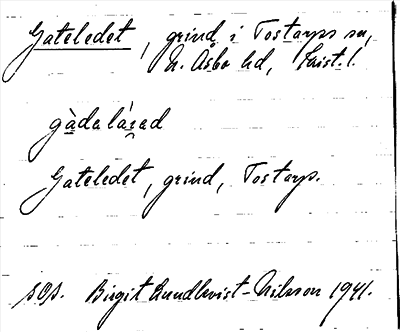 Gateledet, grind i Tostarps sn,
N. Åsbo hd, Krist. l.
gàdaláəd
Gateledet, grind, Tostarp.
sOs. Birgit Lundkvist-Nilsson 1941.